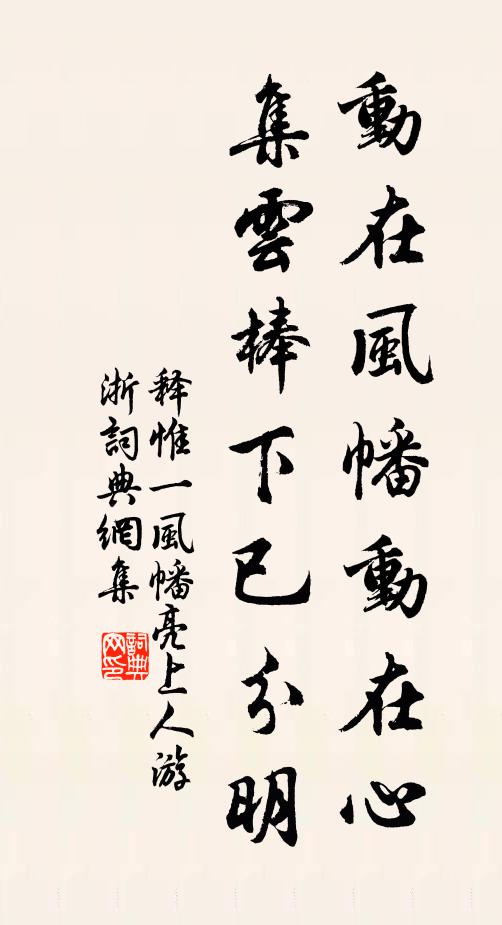 動在風幡動在心
集雲棒下已分明
释惟一風幡亮上人游
浙詞典網集
詞典网印